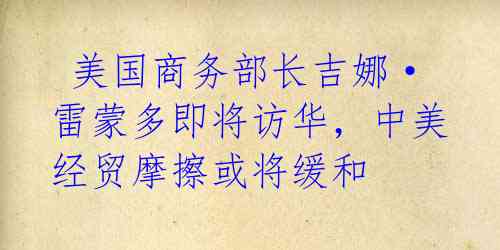 美国商务部长吉娜·
雷蒙多即将访华，中美
经贸摩擦或将缓和